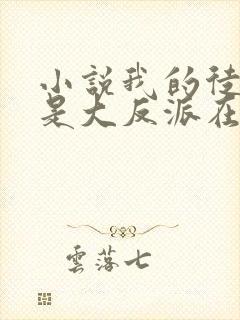 小說我的徒
是大反派在
雲落七